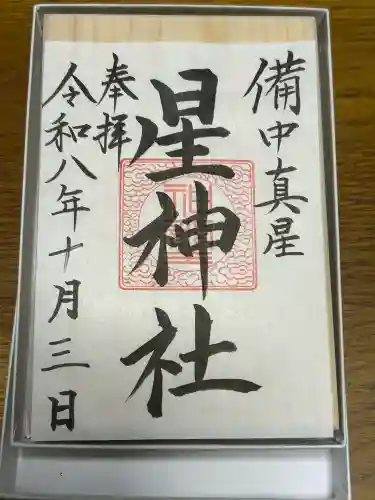 備中真星
星神社
奉拝
令和八年十月三日